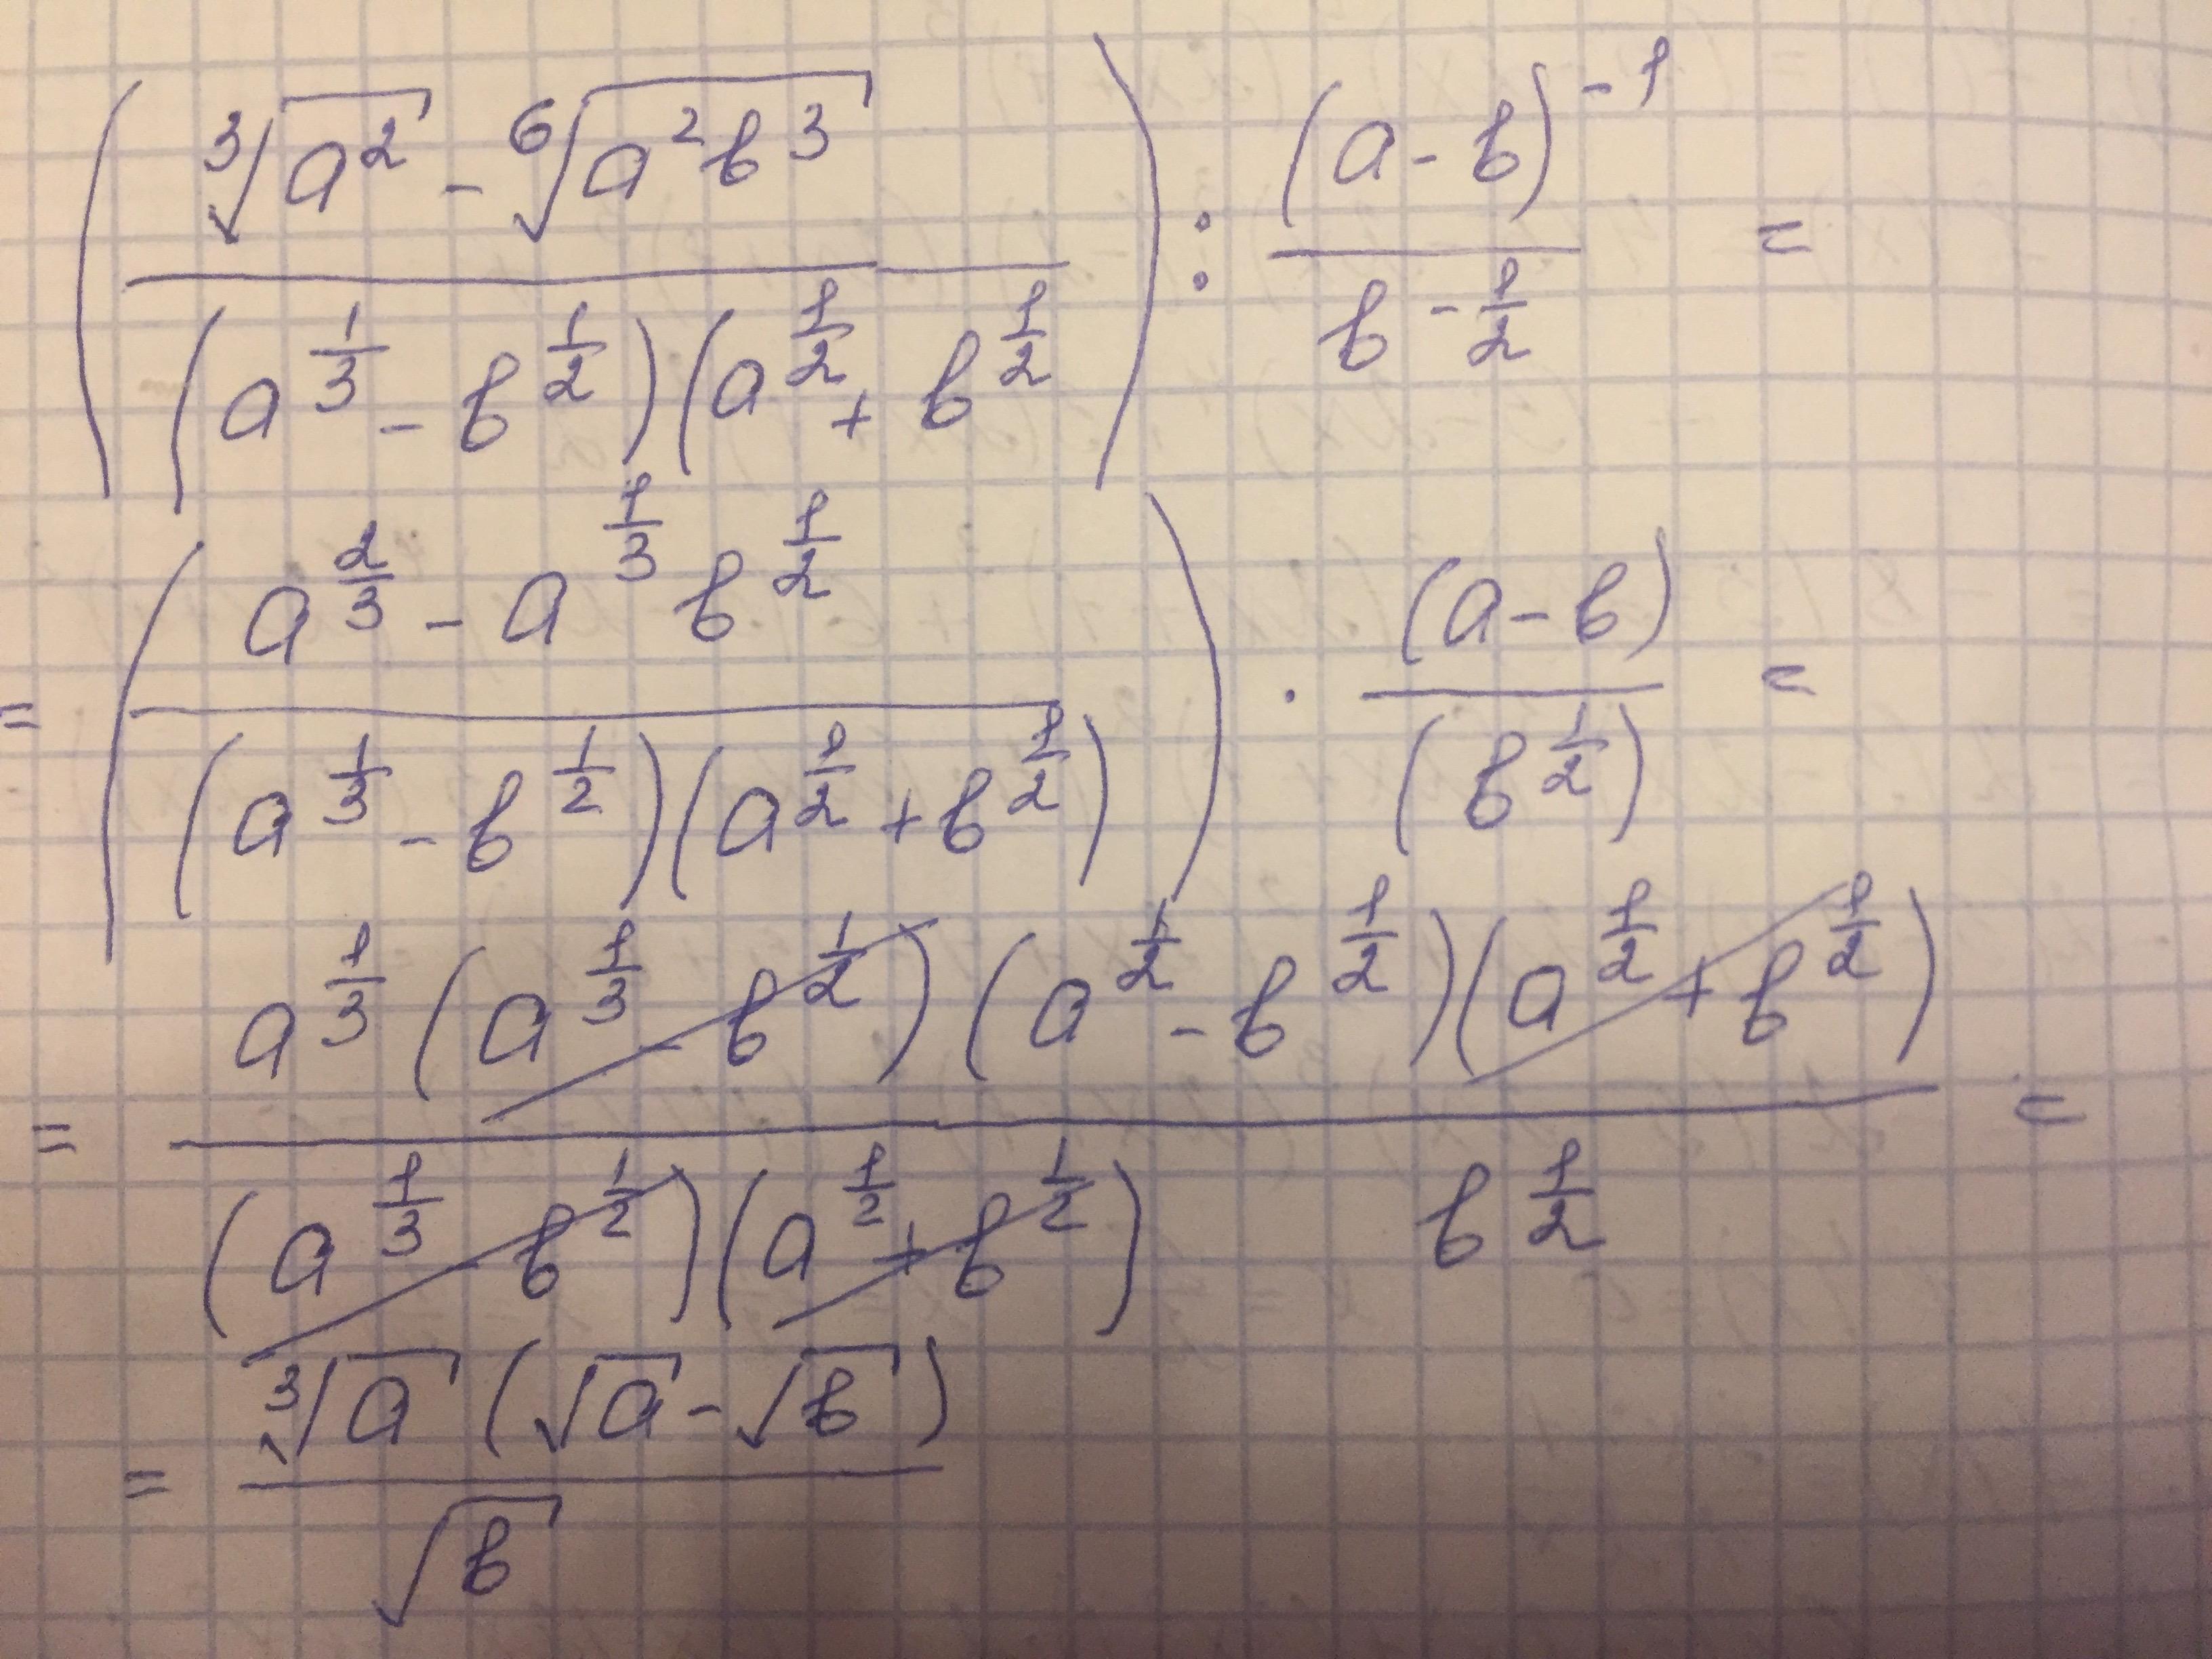 (∛(a²) - ⁶√(a²b³)) / ((a^(1/3) - b^(1/2))(a^(1/2) + b^(1/2)) : (a-b)^(-1) / b^(-1/2) =
= ((a^(2/3) - a^(1/3) b^(1/2)) / ((a^(1/3) - b^(1/2))(a^(1/2) + b^(1/2)))) · (a-b) / (b^(1/2)) =
= a^(1/3) (a^(1/3) - b^(1/2)) (a^(1/2) - b^(1/2))(a^(1/2) + b^(1/2)) / (a^(1/3) - b^(1/2))(a^(1/2) + b^(1/2)) b^(1/2) =
= ∛a (√a - √b) / √b